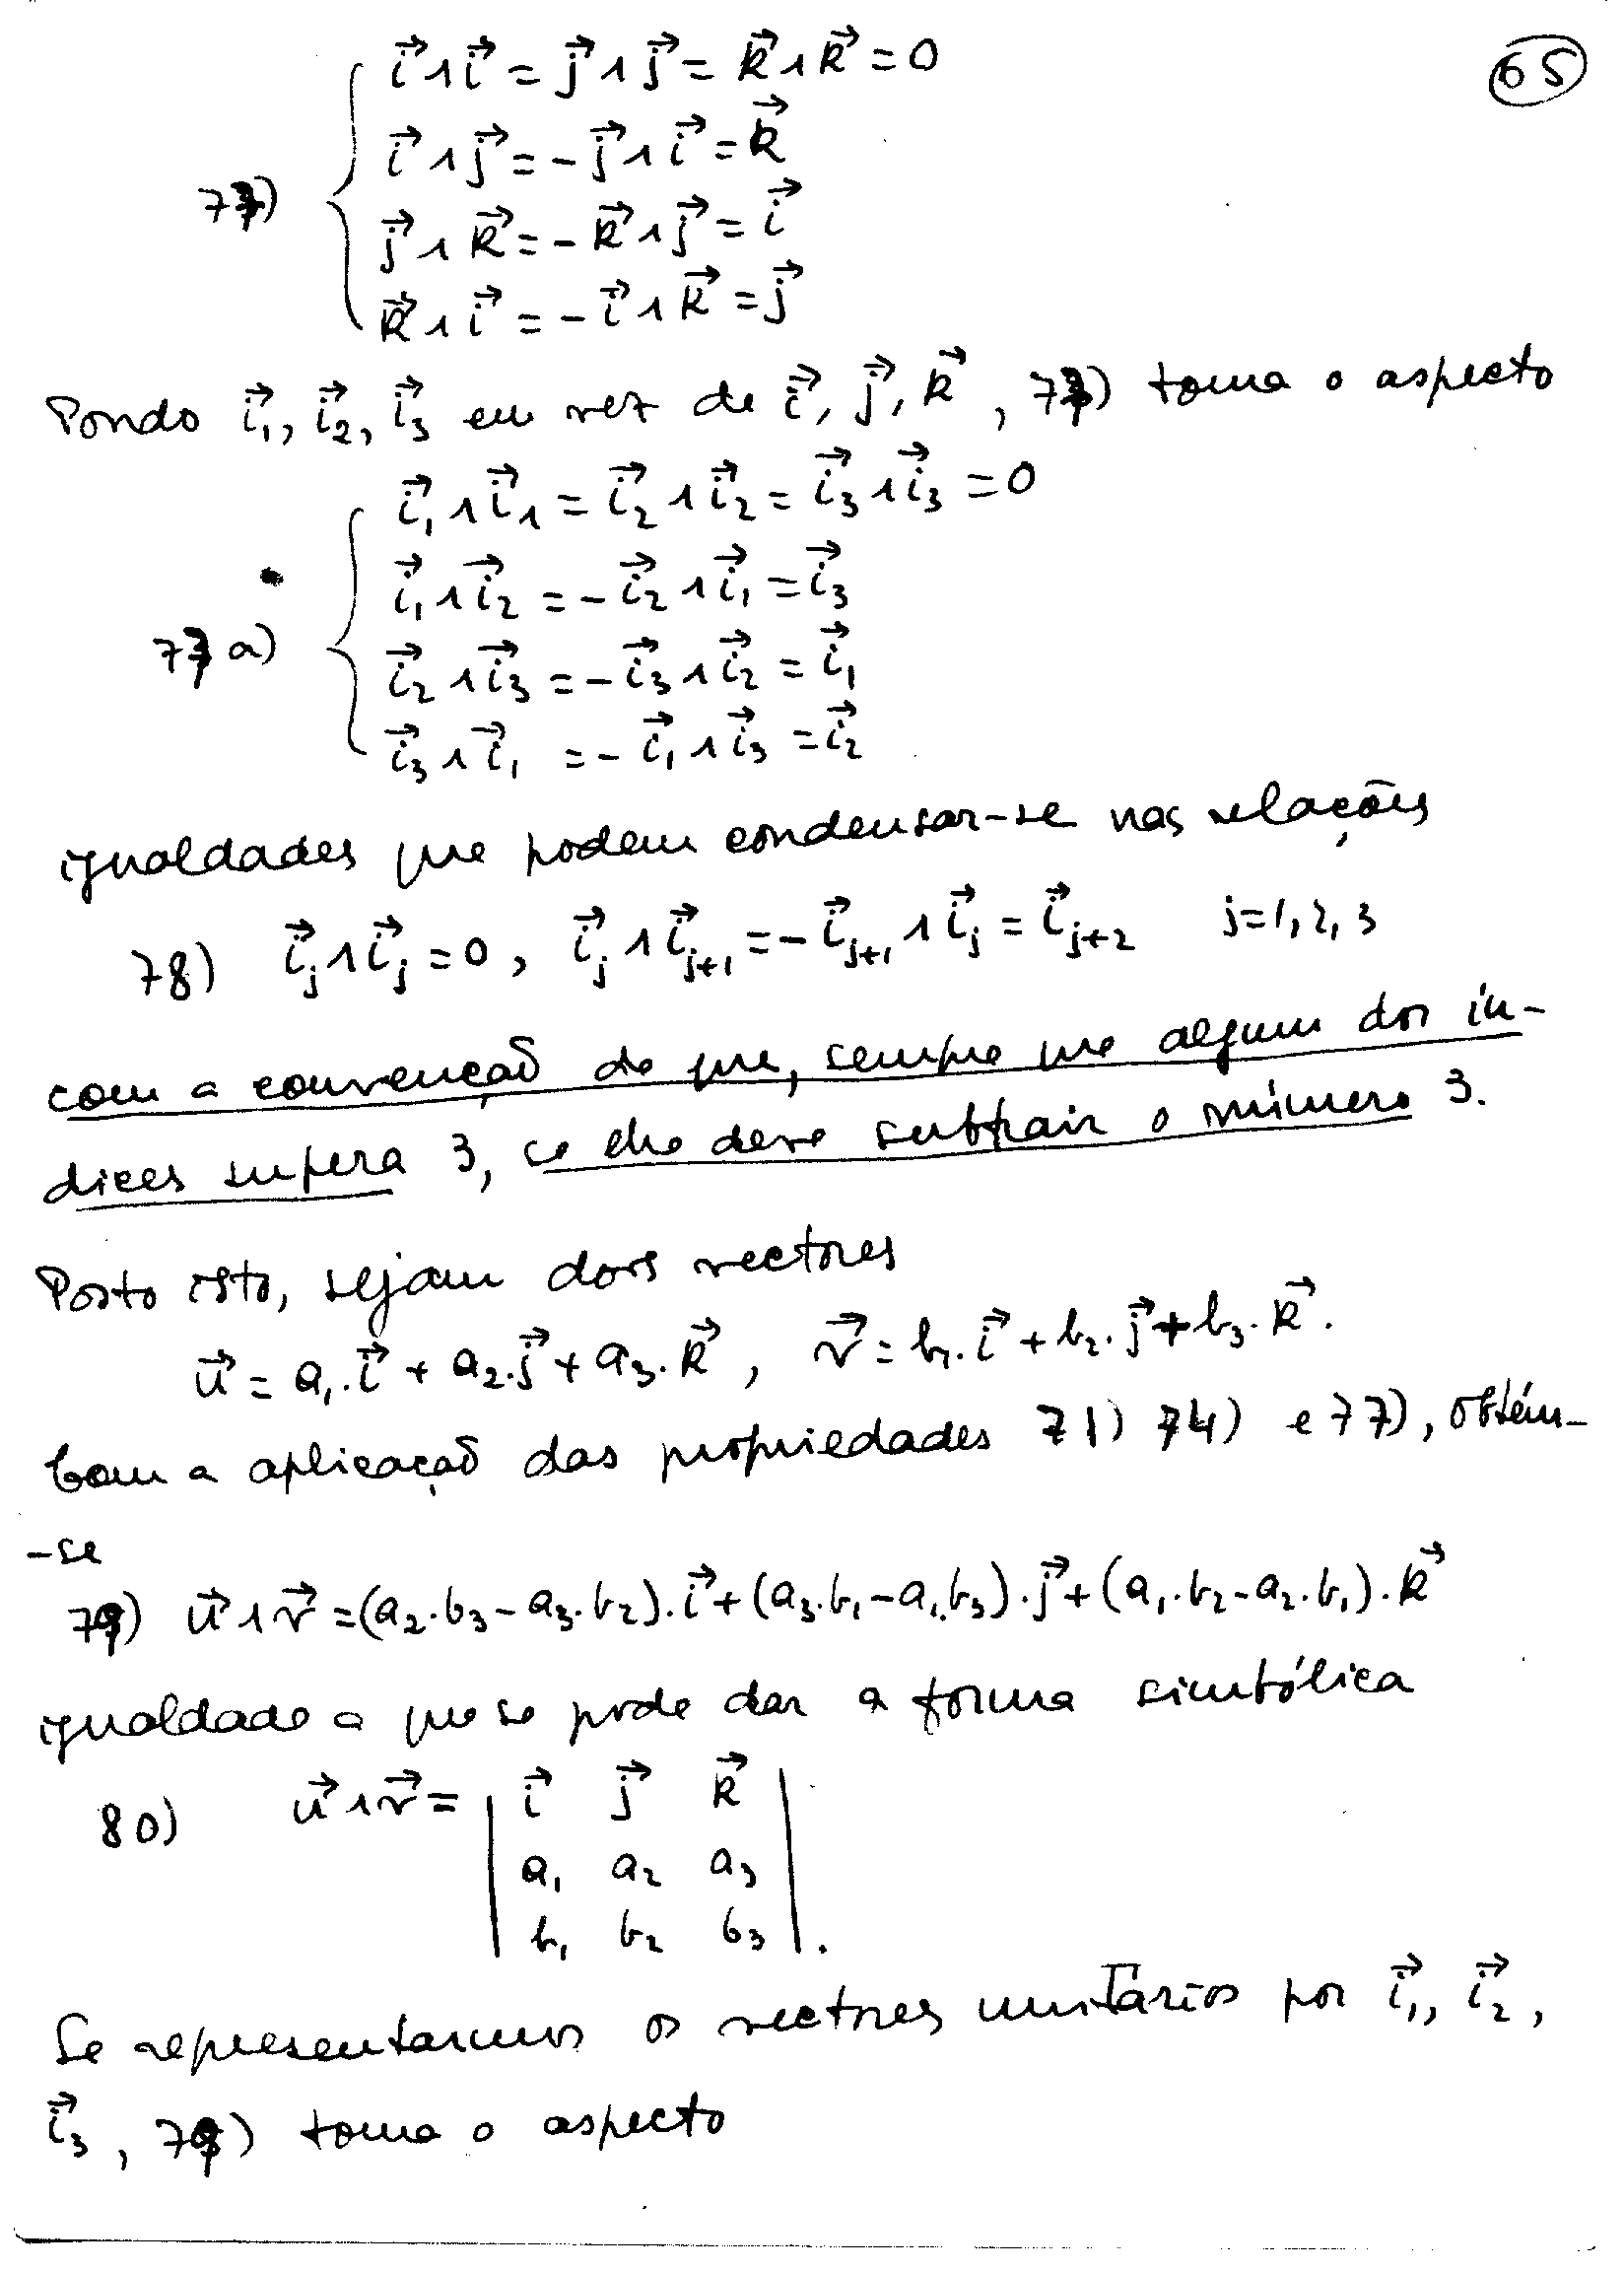 65
77) { i⃗ ∧ i⃗ = j⃗ ∧ j⃗ = k⃗ ∧ k⃗ = 0
i⃗ ∧ j⃗ = - j⃗ ∧ i⃗ = k⃗
j⃗ ∧ k⃗ = - k⃗ ∧ j⃗ = i⃗
k⃗ ∧ i⃗ = - i⃗ ∧ k⃗ = j⃗
Pondo i⃗₁, i⃗₂, i⃗₃ em vez de i⃗, j⃗, k⃗, 77) toma o aspecto
77 a) { i⃗₁ ∧ i⃗₁ = i⃗₂ ∧ i⃗₂ = i⃗₃ ∧ i⃗₃ = 0
i⃗₁ ∧ i⃗₂ = - i⃗₂ ∧ i⃗₁ = i⃗₃
i⃗₂ ∧ i⃗₃ = - i⃗₃ ∧ i⃗₂ = i⃗₁
i⃗₃ ∧ i⃗₁ = - i⃗₁ ∧ i⃗₃ = i⃗₂
igualdades que podem condensar-se nas relações
78) i⃗_j ∧ i⃗_j = 0, i⃗_j ∧ i⃗_{j+1} = - i⃗_{j+1} ∧ i⃗_j = i⃗_{j+2} j=1, 2, 3
com a convenção de que, sempre que algum dos ín-
dices supera 3, se lhe deve subtrair o número 3.
Posto isto, sejam dois vectores
u⃗ = a₁. i⃗ + a₂. j⃗ + a₃. k⃗, v⃗ = b₁. i⃗ + b₂. j⃗ + b₃. k⃗.
Com a aplicação das propriedades 71) 74) e 77), obtém-
-se
79) u⃗ ∧ v⃗ = (a₂.b₃ - a₃.b₂). i⃗ + (a₃.b₁ - a₁.b₃). j⃗ + (a₁.b₂ - a₂.b₁). k⃗
igualdade a que se pode dar a forma simbólica
80) u⃗ ∧ v⃗ = | i⃗ j⃗ k⃗ |
a₁ a₂ a₃
b₁ b₂ b₃ .
Se representarmos os vectores unitários por i⃗₁, i⃗₂,
i⃗₃, 79) toma o aspecto